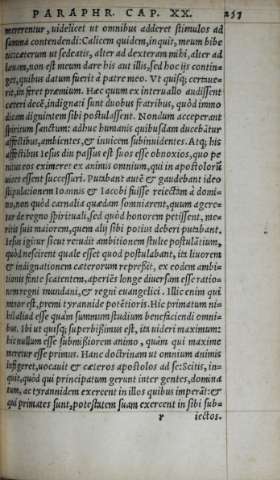 PARAPHR. CAP. XX. 257
mererentur, uidelicet ut omnibus adderet stimulos ad
summa contendendi: Calicem quidem, inquit, meum bibe
tis: cæterum ut sedeatis, alter ad dexteram mihi, alter ad
læuam, non est meum dare his aut illis, sed hoc ijs contin
get, quibus datum fuerit à patre meo. Vt quisq; certaue-
rit, in feret præmium. Hæc quum ex interuallo audissent
cæteri decẽ, indignati sunt duobus fratribus, quòd immo
dicam dignitatem sibi postulassent. Nondum acceperant
spiritum sanctum: adhuc humanis quibusdam ducebãtur
affectibus, ambientes, & inuicem subinuidentes. Atq; his
affectibus Iesus diu passus est suos esse obnoxios, quo pe
nitus eos eximeret ex animis omnium, qui in apostolorũ
uices essent successuri. Putabant autẽ & gaudebant ideo
stipulationem Ioannis & Iacobi fuisse reiectam à domi-
no, non quòd carnalia quædam somniarent, quum agere-
tur de regno spirituali, sed quòd honorem petissent, me-
ritis suis maiorem, quem alij sibi potius deberi putabant.
Iesus igitur sicut retudit ambitionem stulte postulãtium,
quòd nescirent quale esset quod postulabant, ita liuorem
& indignationem cæterorum repressit, ex eodem ambi-
tionis fonte scatentem, aperiẽs longe diuersam esse ratio-
nem regni mundani, & regni euangelici. Illic enim qui
maior est, premit tyrannide potẽtioris. Hic primatum ni-
hil aliud esse quàm summum studium beneficiendi omni-
bus. Ibi ut quisq; superbissimus est, ita uideri maximum:
hic nullum esse submissiorem animo, quàm qui maxime
meretur esse primus. Hanc doctrinam ut omnium animis
infigeret, uocauit & cæteros apostolos ad se: Scitis, in-
quit, quòd qui principatum gerunt inter gentes, domina
tum, ac tyrannidem exercent in illos quibus imperãt: &
qui primates sunt, potestatem suam exercent in sibi sub-
r iectos.